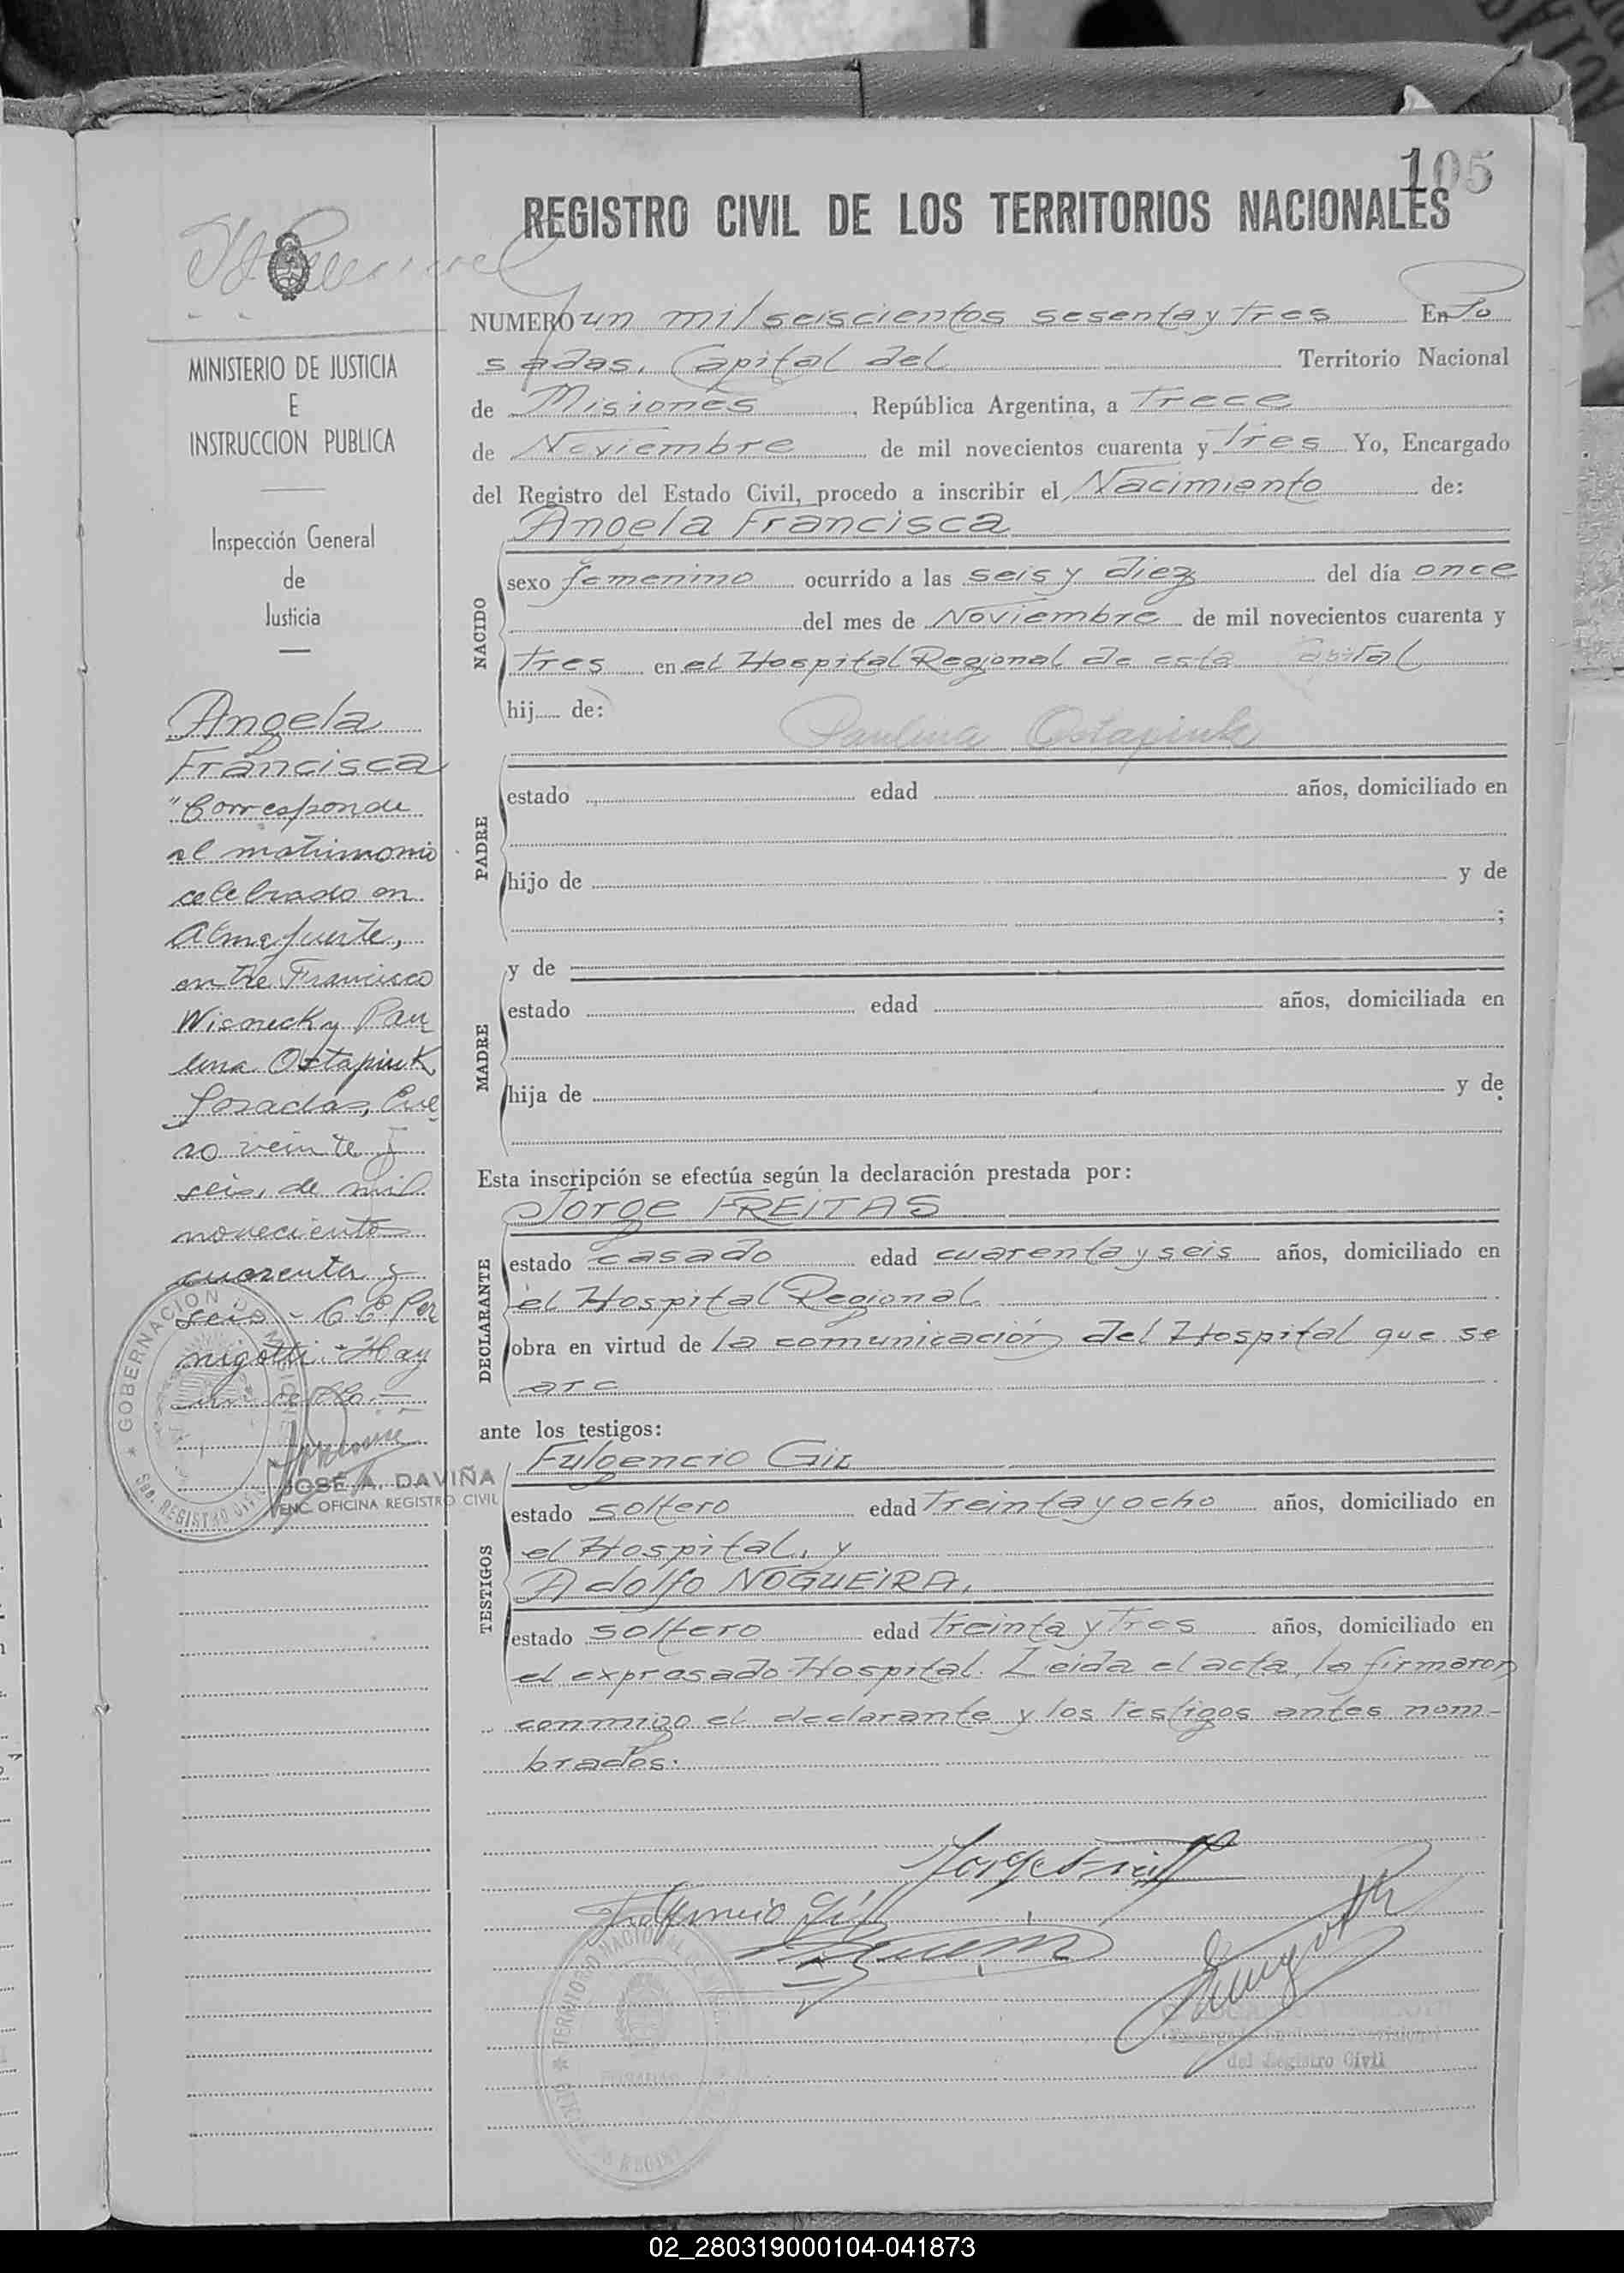 105
REGISTRO CIVIL DE LOS TERRITORIOS NACIONALES
MINISTERIO DE JUSTICIA
E
INSTRUCCION PUBLICA
Inspección General
de
Justicia
Angela
Francisca
"Corresponde
al matrimonio
celebrado en
Almafuerte,
entre Francisco
Wisneck y Pau
lina Ostapiuk
Posadas, Ene
ro veinte y
seis, de mil
novecientos
cuarenta y
seis - C. E. Per
nigotti - Hay
un sello.-
GOBERNACION DE MISIONES
REGISTRO CIVIL
JOSÉ A. DAVIÑA
ENC. OFICINA REGISTRO CIVIL
NUMERO un mil seiscientos sesenta y tres En Po
sadas, Capital del Territorio Nacional
de Misiones, República Argentina, a Trece
de Noviembre de mil novecientos cuarenta y Tres Yo, Encargado
del Registro del Estado Civil, procedo a inscribir el Nacimiento de:
Angela Francisca
NACIDO
sexo femenino ocurrido a las seis y diez del día once
del mes de Noviembre de mil novecientos cuarenta y
Tres en el Hospital Regional de esta Capital
hij de:
Paulina Ostapiuk
PADRE
estado edad años, domiciliado en
hijo de y de
;
y de
MADRE
estado edad años, domiciliada en
hija de y de
Esta inscripción se efectúa según la declaración prestada por:
Jorge FREITAS
DECLARANTE
estado casado edad cuarenta y seis años, domiciliado en
el Hospital Regional
obra en virtud de la comunicación del Hospital que se
arc
ante los testigos:
Fulgencio Gil
TESTIGOS
estado soltero edad Treinta y ocho años, domiciliado en
el Hospital, y
Adolfo NOGUEIRA,
estado soltero edad Treinta y Tres años, domiciliado en
el expresado Hospital. Leida el acta, la firmaron
conmigo el declarante y los testigos antes nom-
brados.
Fulgencio Gil
TERRITORIO NACIONAL
POSADAS
del Registro Civil
02_280319000104-041873